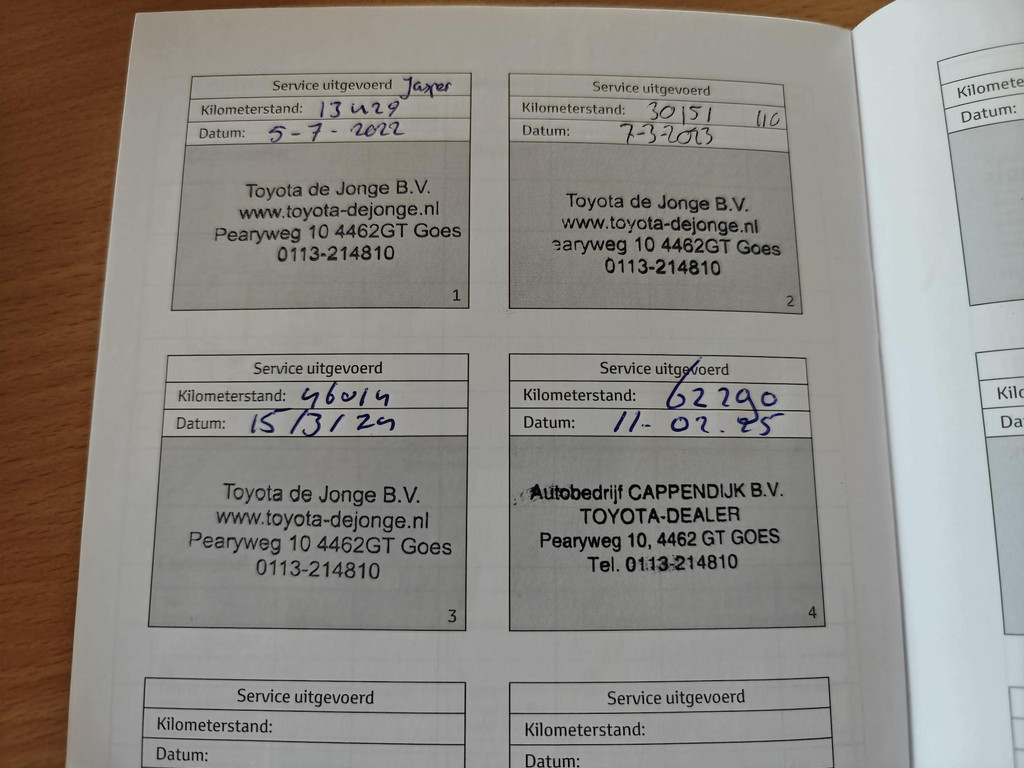 Service uitgevoerd Jasper
Kilometerstand: 13429
Datum: 5-7-2022
Toyota de Jonge B.V.
www.toyota-dejonge.nl
Pearyweg 10 4462GT Goes
0113-214810
1
Service uitgevoerd
Kilometerstand: 30151
Datum: 7-3-2023
Toyota de Jonge B.V.
www.toyota-dejonge.nl
earyweg 10 4462GT Goes
0113-214810
2
Service uitgevoerd
Kilometerstand: 46014
Datum: 15/3/24
Toyota de Jonge B.V.
www.toyota-dejonge.nl
Pearyweg 10 4462GT Goes
0113-214810
3
Service uitgevoerd
Kilometerstand: 62290
Datum: 11-02.25
Autobedrijf CAPPENDIJK B.V.
TOYOTA-DEALER
Pearyweg 10, 4462 GT GOES
Tel. 0113-214810
4
Service uitgevoerd
Kilometerstand:
Datum:
Service uitgevoerd
Kilometerstand:
Datum:
Kilomete
Datum:
Kilc
Da